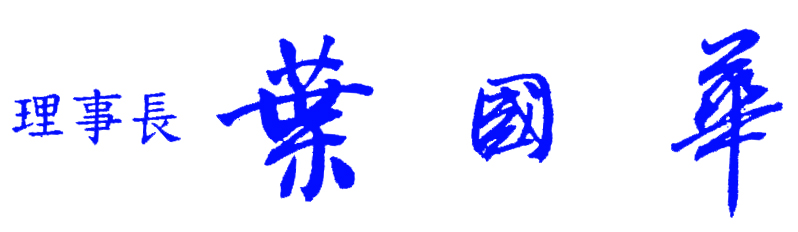 理事長 葉國華